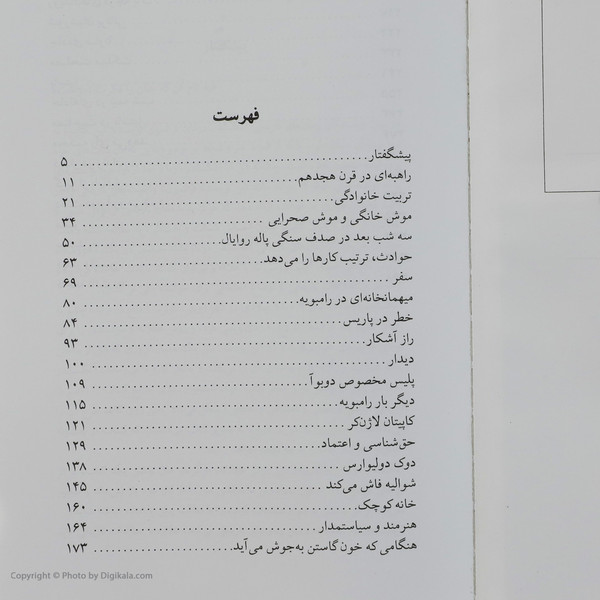 فهرست
پیشگفتار ..... ۵
راهبه‌ای در قرن هجدهم ..... ۱۱
تربیت خانوادگی ..... ۲۱
موش خانگی و موش صحرایی ..... ۳۴
سه شب بعد در صدف سنگی پاله روایال ..... ۵۰
حوادث، ترتیب کارها را می‌دهد ..... ۶۳
سفر ..... ۶۹
میهمانخانه‌ای در رامبویه ..... ۸۰
خطر در پاریس ..... ۸۴
راز آشکار ..... ۹۳
دیدار ..... ۱۰۰
پلیس مخصوص دوبوآ ..... ۱۰۹
دیگر بار رامبویه ..... ۱۱۵
کاپیتان لاژن‌کر ..... ۱۲۱
حق‌شناسی و اعتماد ..... ۱۲۹
دوک دولیوارس ..... ۱۳۸
شوالیه فاش می‌کند ..... ۱۴۵
خانه کوچک ..... ۱۶۰
هنرمند و سیاستمدار ..... ۱۶۴
هنگامی که خون گاستن به‌جوش می‌آید ..... ۱۷۳
Copyright © Photo by Digikala.com